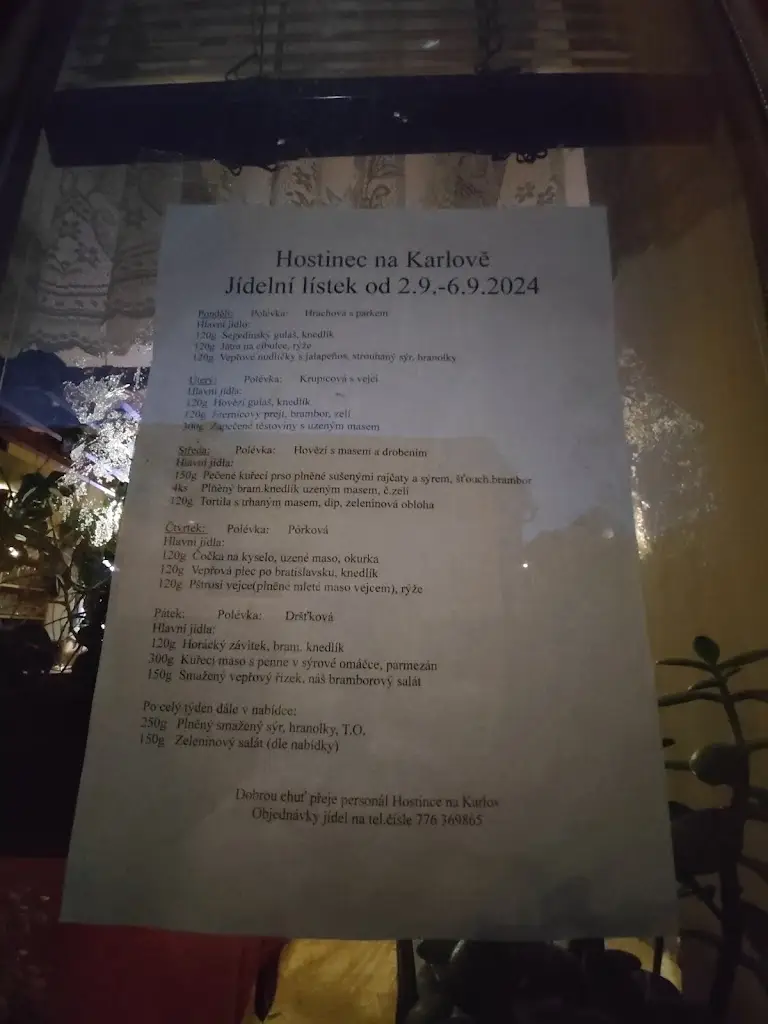 Hostinec na Karlově
Jídelní lístek od 2.9.-6.9.2024
Pondělí: Polévka: Hrachová s párkem
Hlavní jídlo:
120g Segedínský guláš, knedlík
120g Játra na cibulce, rýže
120g Vepřové nudličky s jalapeños, strouhaný sýr, hranolky
Úterý: Polévka: Krupicová s vejci
Hlavní jídla:
120g Hovězí guláš, knedlík
120g Perníkový prejt, brambor, zelí
300g Zapečené těstoviny s uzeným masem
Středa: Polévka: Hovězí s masem a drobením
Hlavní jídla:
150g Pečené kuřecí prso plněné sušenými rajčaty a sýrem, šťouch.brambor
4ks Plněný bram.knedlík uzeným masem, č.zelí
120g Tortila s trhaným masem, dip, zeleninová obloha
Čtvrtek: Polévka: Pórková
Hlavní jídla:
120g Čočka na kyselo, uzené maso, okurka
120g Vepřová plec po bratislavsku, knedlík
120g Pštrosí vejce(plněné mleté maso vejcem), rýže
Pátek: Polévka: Dršťková
Hlavní jídla:
120g Horácký závitek, bram. knedlík
300g Kuřecí maso s penne v sýrové omáčce, parmezán
150g Smažený vepřový řízek, náš bramborový salát
Po celý týden dále v nabídce:
250g Plněný smažený sýr, hranolky, T.O.
150g Zeleninový salát (dle nabídky)
Dobrou chuť přeje personál Hostince na Karlov
Objednávky jídel na tel.čísle 776 369865